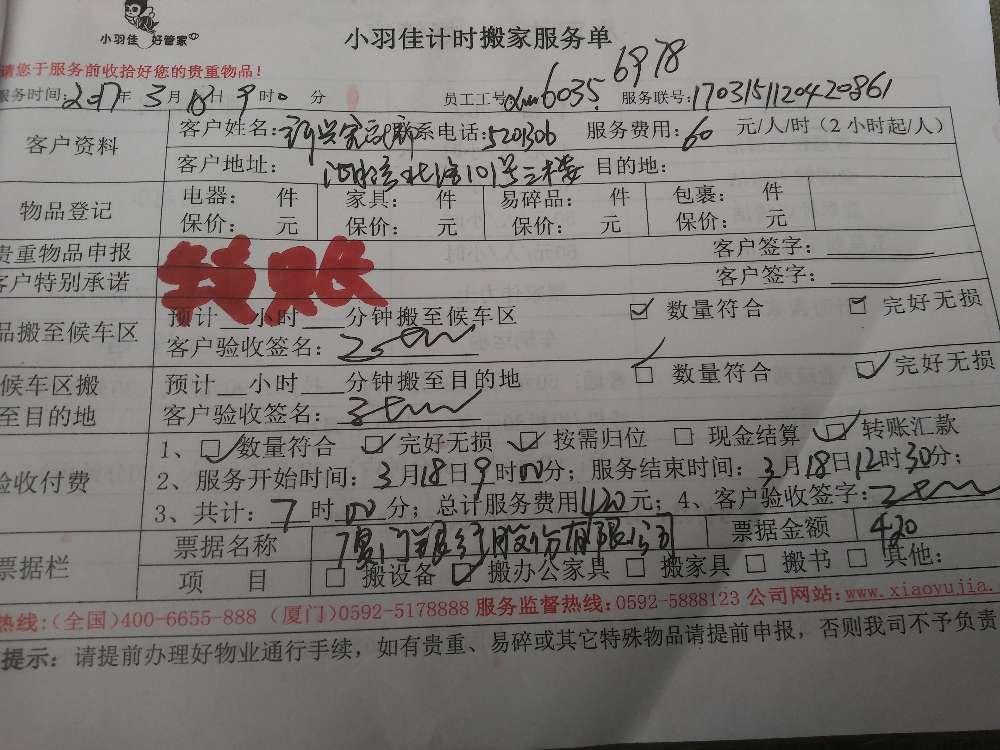 小羽佳 好管家
小羽佳计时搬家服务单
请您于服务前收拾好您的贵重物品！
服务时间:2017年3月18日9时0分 员工工号: 6035 6978 服务联号:1703151120420861
客户资料 客户姓名: 联系电话:5201306 服务费用:60元/人/时（2小时起/人）
客户地址: 101号三楼 目的地:
物品登记 电器: 件 家具: 件 易碎品: 件 包裹: 件
保价: 元 保价: 元 保价: 元 保价: 元
贵重物品申报 客户签字:
客户特别承诺 客户签字:
转账
品搬至候车区 预计__小时___分钟搬至候车区 ☑ 数量符合 ☑ 完好无损
客户验收签名:
候车区搬至目的地 预计__小时___分钟搬至目的地 ☑ 数量符合 ☑ 完好无损
客户验收签名:
验收付费 1、☑数量符合 ☑完好无损 ☑按需归位 □现金结算 ☑转账汇款
2、服务开始时间:3月18日9时00分；服务结束时间:3月18日12时30分；
3、共计:7时00分；总计服务费用420元；4、客户验收签字:
票据栏 票据名称 厦门 银行股份有限公司 票据金额 420
项 目 □搬设备 ☑搬办公家具 □搬家具 □搬书 □其他:
热线:(全国)400-6655-888 (厦门)0592-5178888 服务监督热线:0592-5888123 公司网站:www.xiaoyujia.
提示: 请提前办理好物业通行手续，如有贵重、易碎或其它特殊物品请提前申报，否则我司不予负责